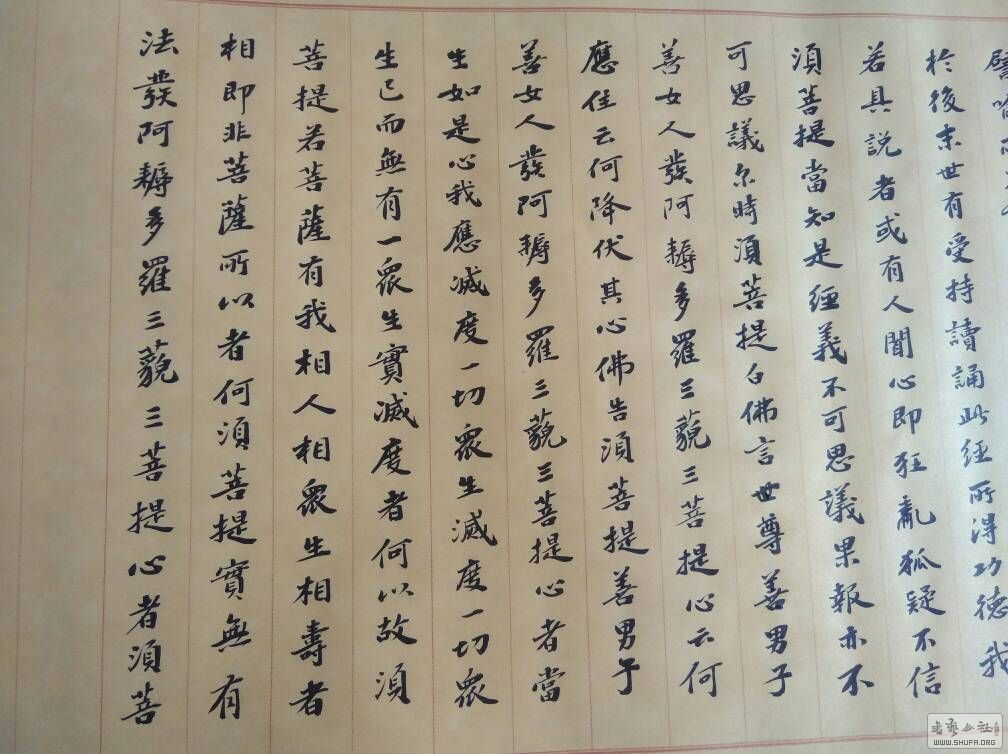 譬喻所
於後末世有受持讀誦此經所得功德我
若具説者或有人聞心即狂亂狐疑不信
須菩提當知是經義不可思議果報亦不
可思議尒時須菩提白佛言世尊善男子
善女人發阿耨多羅三藐三菩提心云何
應住云何降伏其心佛告須菩提善男子
善女人發阿耨多羅三藐三菩提心者當
生如是心我應滅度一切眾生滅度一切眾
生已而無有一眾生實滅度者何以故須
菩提若菩薩有我相人相眾生相壽者
相即非菩薩所以者何須菩提實無有
法發阿耨多羅三藐三菩提心者須菩
书艺公社
WWW.SHUFA.ORG